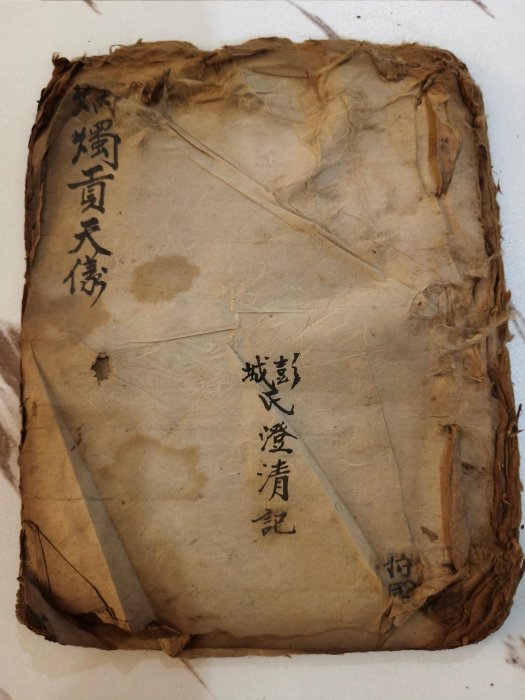 彭城氏澄清記
炳燭貢天儀